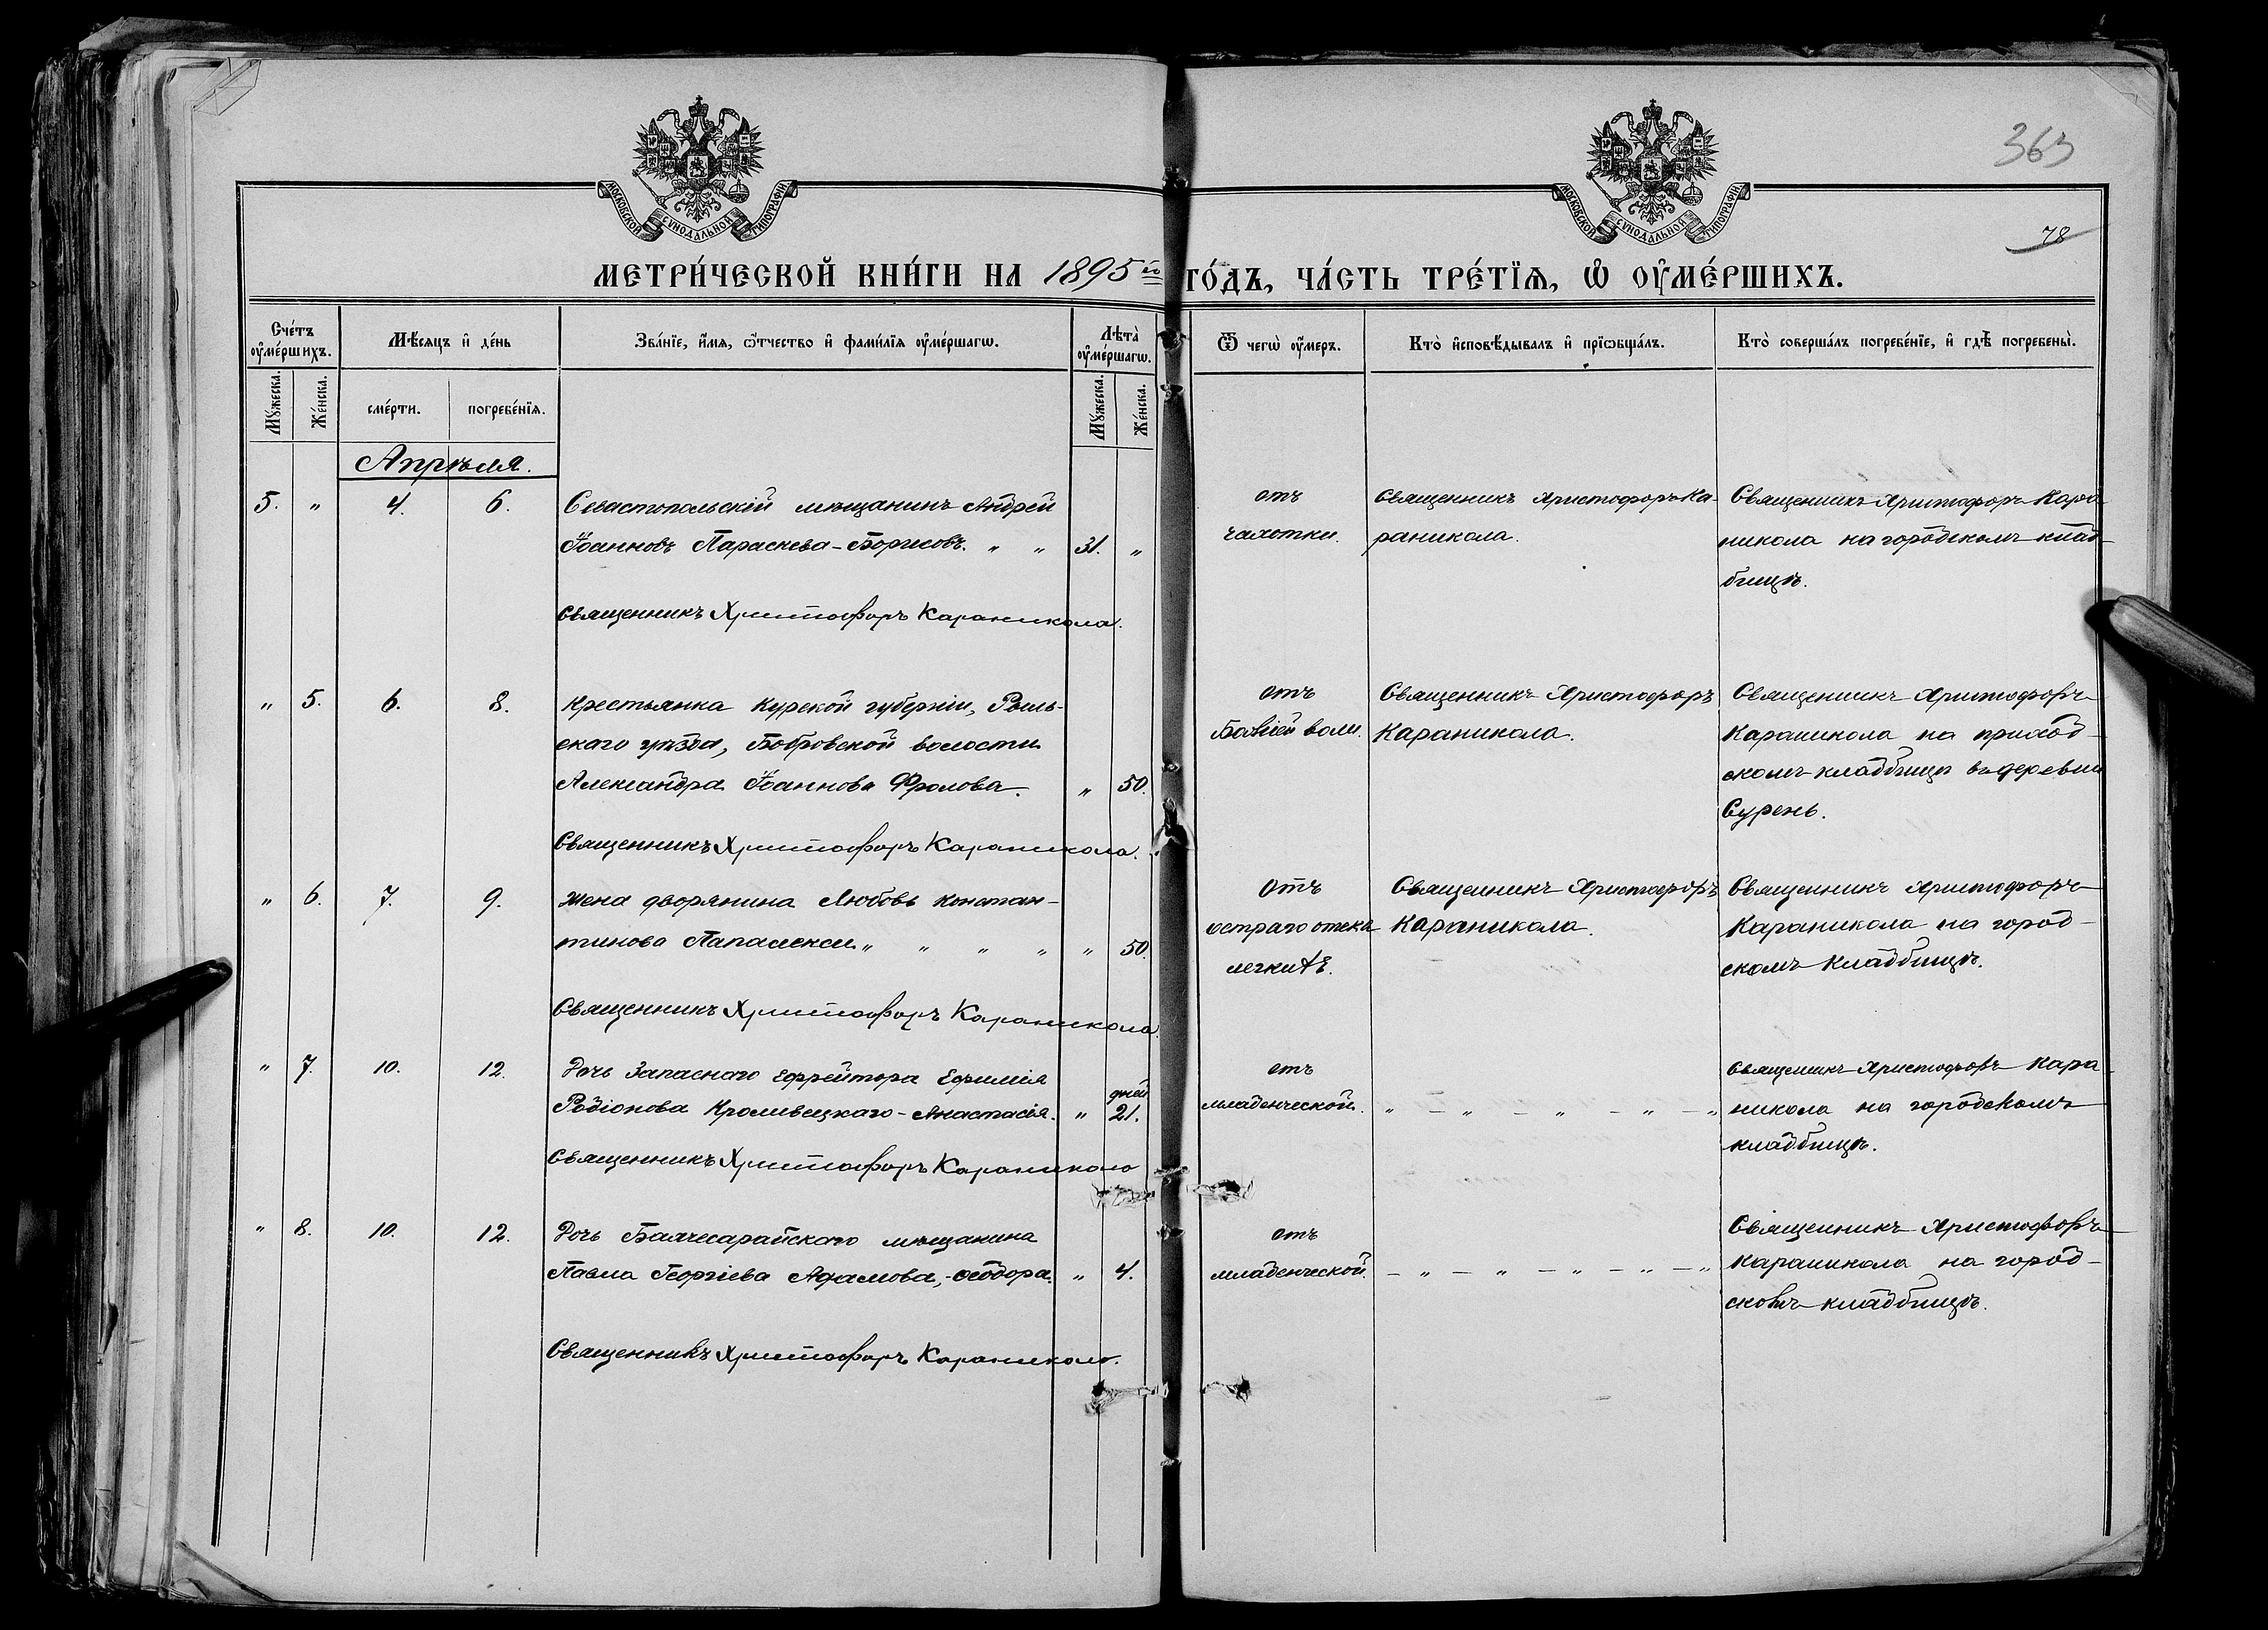 363
78
МОСКОВСКОЙ СѴНОДАЛЬНОЙ ТИПОГРАФІИ
МОСКОВСКОЙ СѴНОДАЛЬНОЙ ТИПОГРАФІИ
МЕТРИ́ЧЕСКОЙ КНИ́ГИ НА 1895й ГО́ДЪ, ЧА́СТЬ ТРЕ́ТЇѦ, Ѡ҆ ОУ҆МЕ́РШИХЪ.
Сче́тъ оу҆ме́ршихъ.
Мѣ́сѧцъ и҆ де́нь
Зва́нїе, и҆́мѧ, ѻ҆́тчество и҆ фами́лїѧ оу҆ме́ршагѡ.
Лѣта̀ оу҆ме́ршагѡ.
Ѿ чегѡ̀ оу҆́меръ.
Кто̀ и҆сповѣ́дывалъ и҆ прїѡбща́лъ.
Кто̀ соверша́лъ погребе́нїе, и҆ гдѣ̀ погребены̀.
Мꙋ́жеска.
Же́нска.
сме́рти.
погребе́нїѧ.
Мꙋ́жеска.
Же́нска.
Апрѣля.
5. " 4. 6. Севастопольскій мѣщанинъ Андрей
Іоанновъ Параскева-Борисовъ. " " 31. "
Священникъ Христофоръ Караникола.
отъ
чахотки.
Священникъ Христофоръ Ка-
раникола.
Священникъ Христофоръ Кара-
никола на городскомъ клад-
бищѣ.
" 5. 6. 8. Крестьянка Курской губерніи, Рыль-
скаго уѣзда, Бобровской волости
Александра Іоаннова Фролова. " 50.
Священникъ Христофоръ Караникола.
отъ
Божіей воли.
Священникъ Христофоръ
Караникола.
Священникъ Христофоръ
Караникола на приход-
скомъ кладбищѣ въ деревни
Сурень.
" 6. 7. 9. Жена дворянина Любовь Констан-
тинова Папалекси " " " " " 50.
Священникъ Христофоръ Караникола.
Отъ
остраго отека
легкихъ.
Священникъ Христофоръ
Караникола.
Священникъ Христофоръ
Караникола на город-
скомъ кладбищѣ.
" 7. 10. 12. Дочь Запаснаго Ефрейтора Ефимія
Родіонова Кроливецкаго-Анастасія. " дней 21.
Священникъ Христофоръ Караникола
отъ
младенческой. " — " — " — " — "
Священникъ Христофоръ Кара-
никола на городскомъ
кладбищѣ.
" 8. 10. 12. Дочь Бахчесарайскаго мѣщанина
Павла Георгіева Адамова, - Ѳеодора. " 4.
Священникъ Христофоръ Караникола.
отъ
младенческой. — " — " — " — " — "
Священникъ Христофоръ
Караникола на город-
скомъ кладбищѣ.